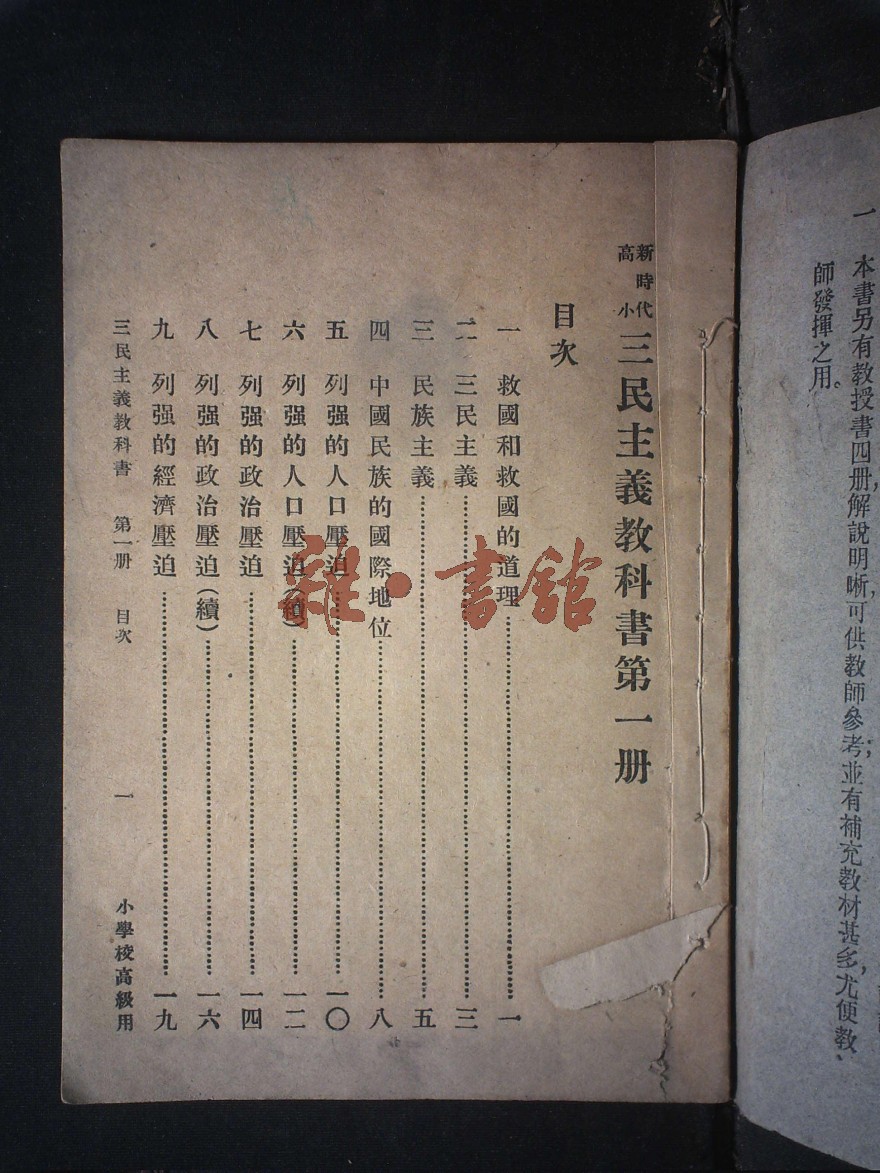 一 本書另有教授書四册,解說明晰,可供教師參考;並有補充教材甚多,尤便教
師發揮之用。
新時代
高小
三民主義教科書第一册
目次
一 救國和救國的道理……一
二 三民主義……三
三 民族主義……五
四 中國民族的國際地位……八
五 列强的人口壓迫……一〇
六 列强的人口壓迫(續)……一二
七 列强的政治壓迫……一四
八 列强的政治壓迫(續)……一六
九 列强的經濟壓迫……一九
三民主義教科書 第一册 目次 一 小學校高級用
雜·書舘